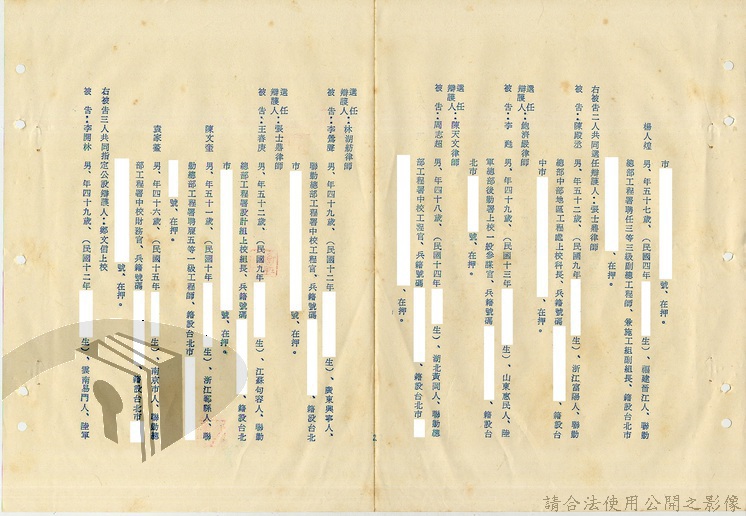 市 號、在押。
楊人煌 男、年五十七歲、(民國四年 生)、福建晉江人、聯勤
總部工程署聘任三等三級副總工程師、兼施工組副組長、籍設台北市
號、在押。
右被告二人共同選任辯護人:張士勝律師
被 告:陳殿丞 男、年五十二歲、(民國九年 生)、浙江富陽人、聯勤
總部中部地區工程處上校科長、兵籍號碼 、籍設台
中市 號、在押。
選任辯護人:鮑濟嚴律師
被 告:李 男、年四十九歲、(民國十三年 生)、山東惠民人、陸
軍總部後勤署上校一般參謀官、兵籍號碼 、籍設台
北市 號、在押。
選任辯護人:陳天文律師
被 告:周志超 男、年四十八歲、(民國十四年 生)、湖北黃岡人、聯勤總
部工程署中校工程官、兵籍號碼 、籍設台北市
、在押。
選任辯護人:林 律師
被 告:李 男、年四十九歲、(民國十二年 生)、廣東興寧人、
聯勤總部工程署中校工程官、兵籍號碼 、籍設台北
市 號、在押。
選任辯護人:張士勝律師
被 告:王壽庚 男、年五十二歲、(民國九年 生)、江蘇句容人、聯勤
總部工程署設計組上校組長、兵籍號碼 、籍設台北
市 號、在押。
陳文奎 男、年五十一歲、(民國十年 生)、浙江 縣人、聯
勤總部工程署聘雇五等一級工程師、籍設台北市
號、在押。
袁家 男、年四十六歲、(民國十五年 生)、南京市人、聯勤總
部工程署中校財務官、兵籍號碼 、籍設台北市
號、在押。
右被告三人共同指定公設辯護人:鄭文 上校
被 告:李開林 男、年四十九歲、(民國十二年 生)、雲南易門人、陸軍
2
請合法使用公開之影像